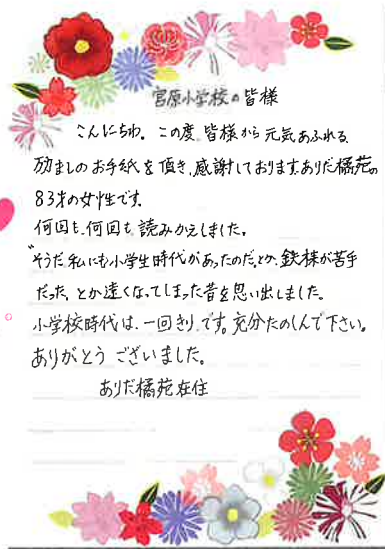 宮原小学校の皆様
こんにちわ。この度、皆様から元気あふれる、
励ましのお手紙を頂き、感謝しております。ありだ橘苑の
83才の女性です。
何回も、何回も、読みかえしました。
"そうだ、私にも小学生時代があったのだ。とか、鉄棒が苦手
だった、とか遠くなってしまった昔を思い出しました。
小学校時代は、一回きり、です。充分たのしんで下さい。
ありがとうございました。
ありだ橘苑在住